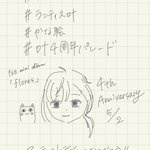 #ランティス叶
#かな絵
#叶4周年パレード
1st mini album
「flores」
4th
Anniversary
5/2